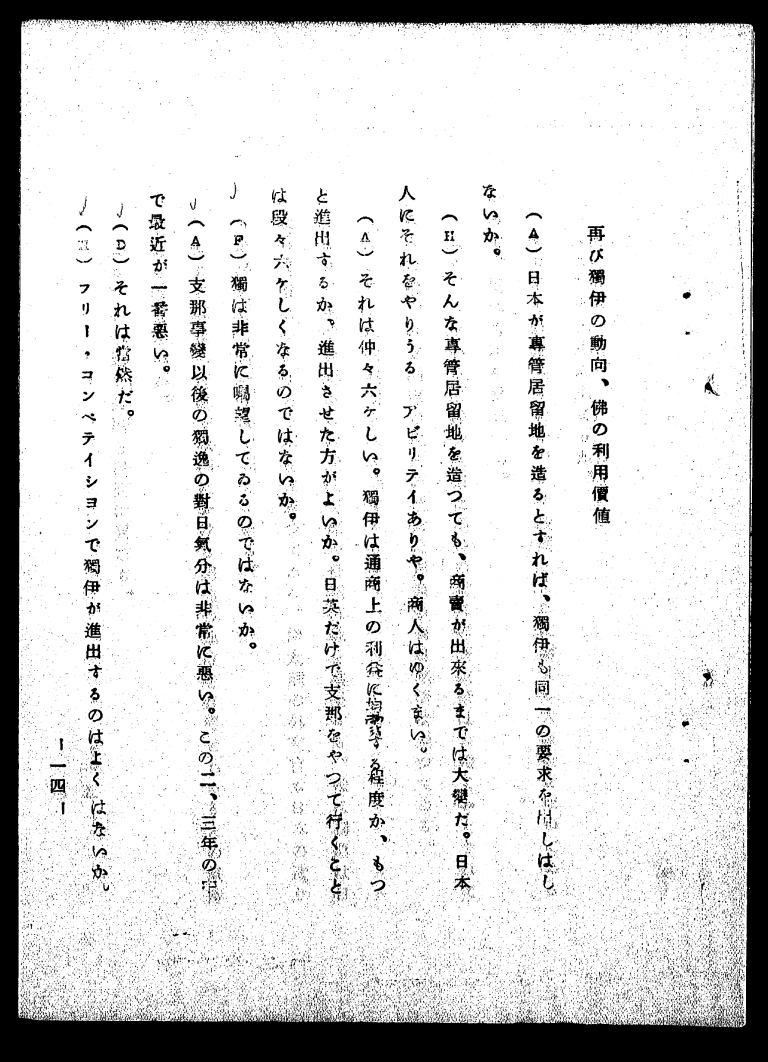 再び獨伊の動向、佛の利用價値
(A) 日本が專管居留地を造るとすれば、獨伊も同一の要求を出しはし
ないか。
(H) そんな專管居留地を造つても、商賣が出來るまでは大變だ。日本
人にそれをやりうる アビリテイありや。商人はゆくまい。
(A) それは仲々六ケしい。獨伊は通商上の利益に均霑する程度か、もつ
と進出するか。進出させた方がよいか。日英だけで支那をやつて行くこと
は段々六ケしくなるのではないか。
(F) 獨は非常に囑望してゐるのではないか。
(A) 支那事變以後の獨逸の對日氣分は非常に悪い。この二、三年の中
で最近が一番悪い。
(D) それは當然だ。
フリー・コンペテイシヨンで獨伊が進出するのはよくはないか。
ー一四ー